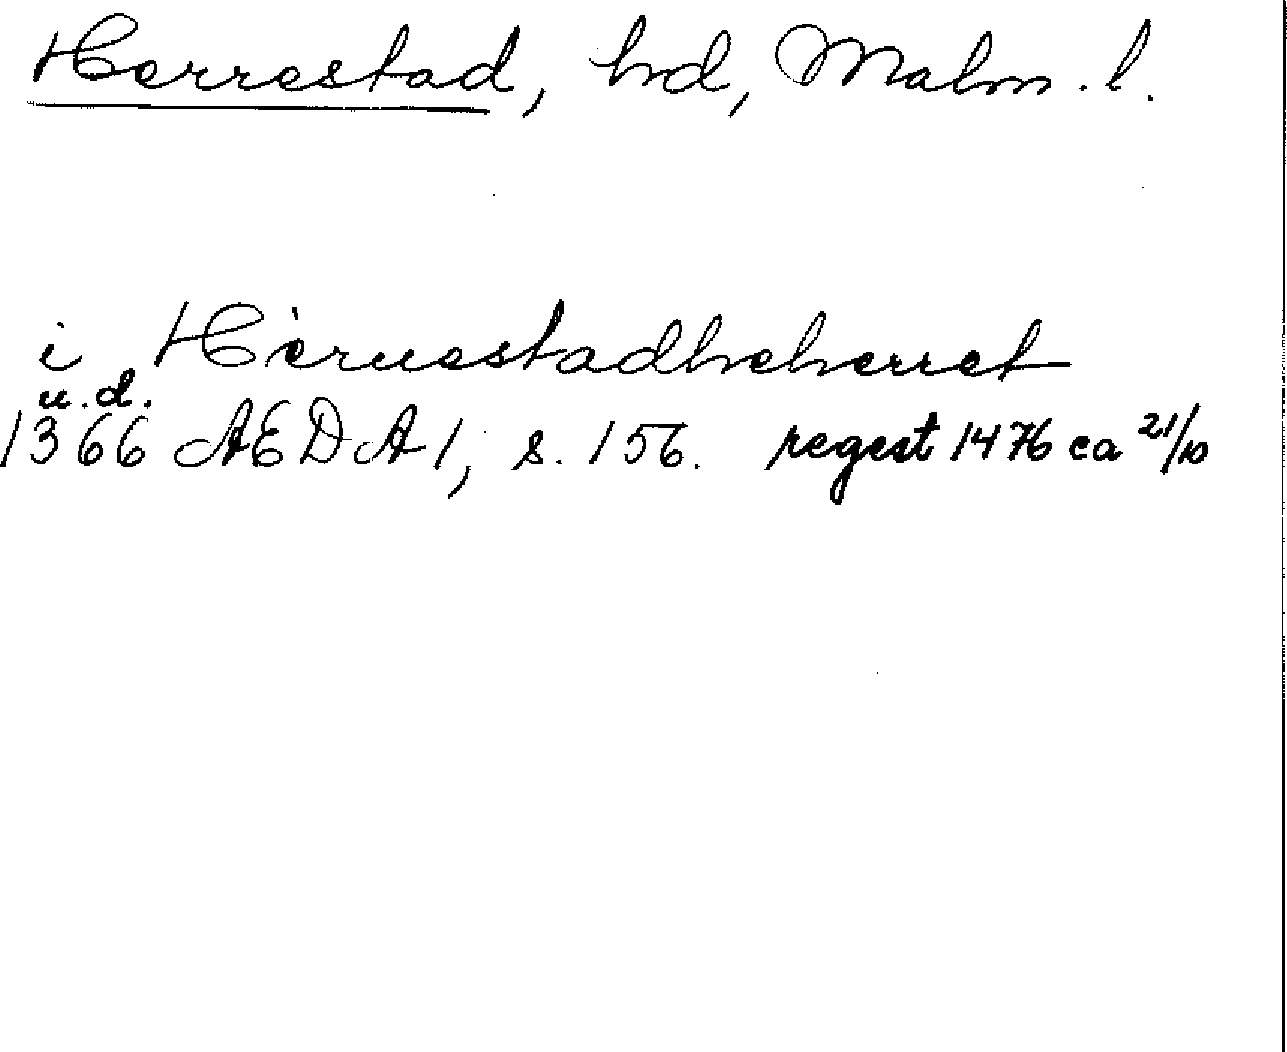 Herrestad, hd, Malm. l.
i Héruestadheherret
u.d.
1366 AEDA 1, s. 156. regest 1476 ca 21/10